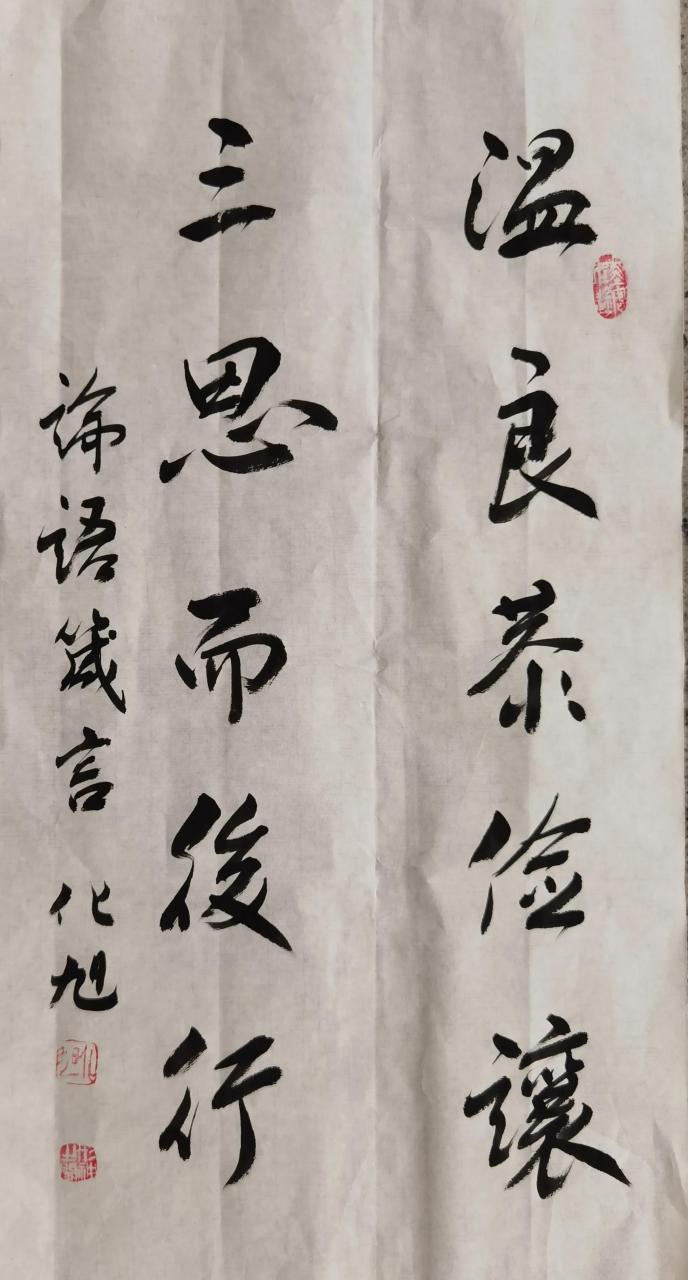 温良恭俭讓
三思而後行
論語箴言 化旭